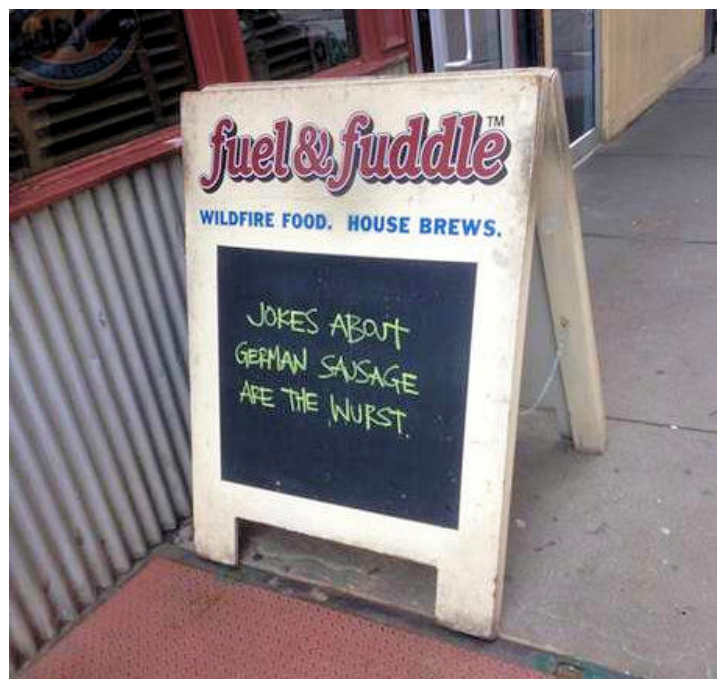 fuel & fuddle™
WILDFIRE FOOD. HOUSE BREWS.
JOKES ABOUT
GERMAN SAUSAGE
ARE THE WURST.